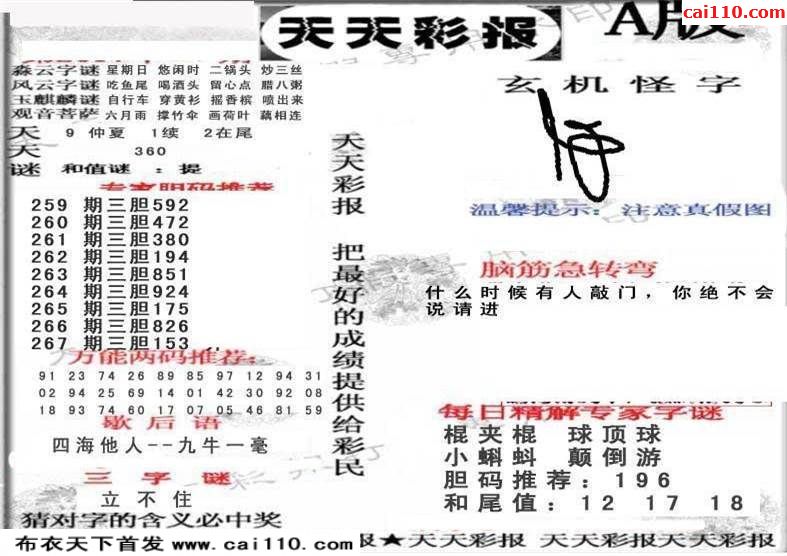 天天彩报
A版
cai110.com
森云字谜 星期日 悠闲时 二锅头 炒三丝
风云字谜 吃鱼尾 喝酒头 留心点 腊八粥
玉麒麟谜 自行车 穿黄衫 摇香槟 喷出来
观音菩萨 六月雨 撑竹伞 画荷叶 藕相连
天 9 仲夏 1续 2在尾
天 360
谜 和值谜 : 提
专家胆码推荐
259 期三胆592
260 期三胆472
261 期三胆380
262 期三胆194
263 期三胆851
264 期三胆924
265 期三胆175
266 期三胆826
267 期三胆153
万能两码推荐:
91 23 74 26 89 85 97 12 94 31
02 94 25 69 14 01 42 30 92 08
18 93 74 60 17 07 05 46 81 59
歇后语
四海他人--九牛一毫
三字谜
立不住
猜对字的含义必中奖
布衣天下首发 www.cai110.com
天天彩报 把最好的成绩提供给彩民
玄机怪字
温馨提示: 注意真假图
脑筋急转弯
什么时候有人敲门，你绝不会
说请进
每日精解专家字谜
棍夹棍 球顶球
小蝌蚪 颠倒游
胆码推荐: 196
和尾值: 12 17 18
报★天天彩报 天天彩报 天天彩报